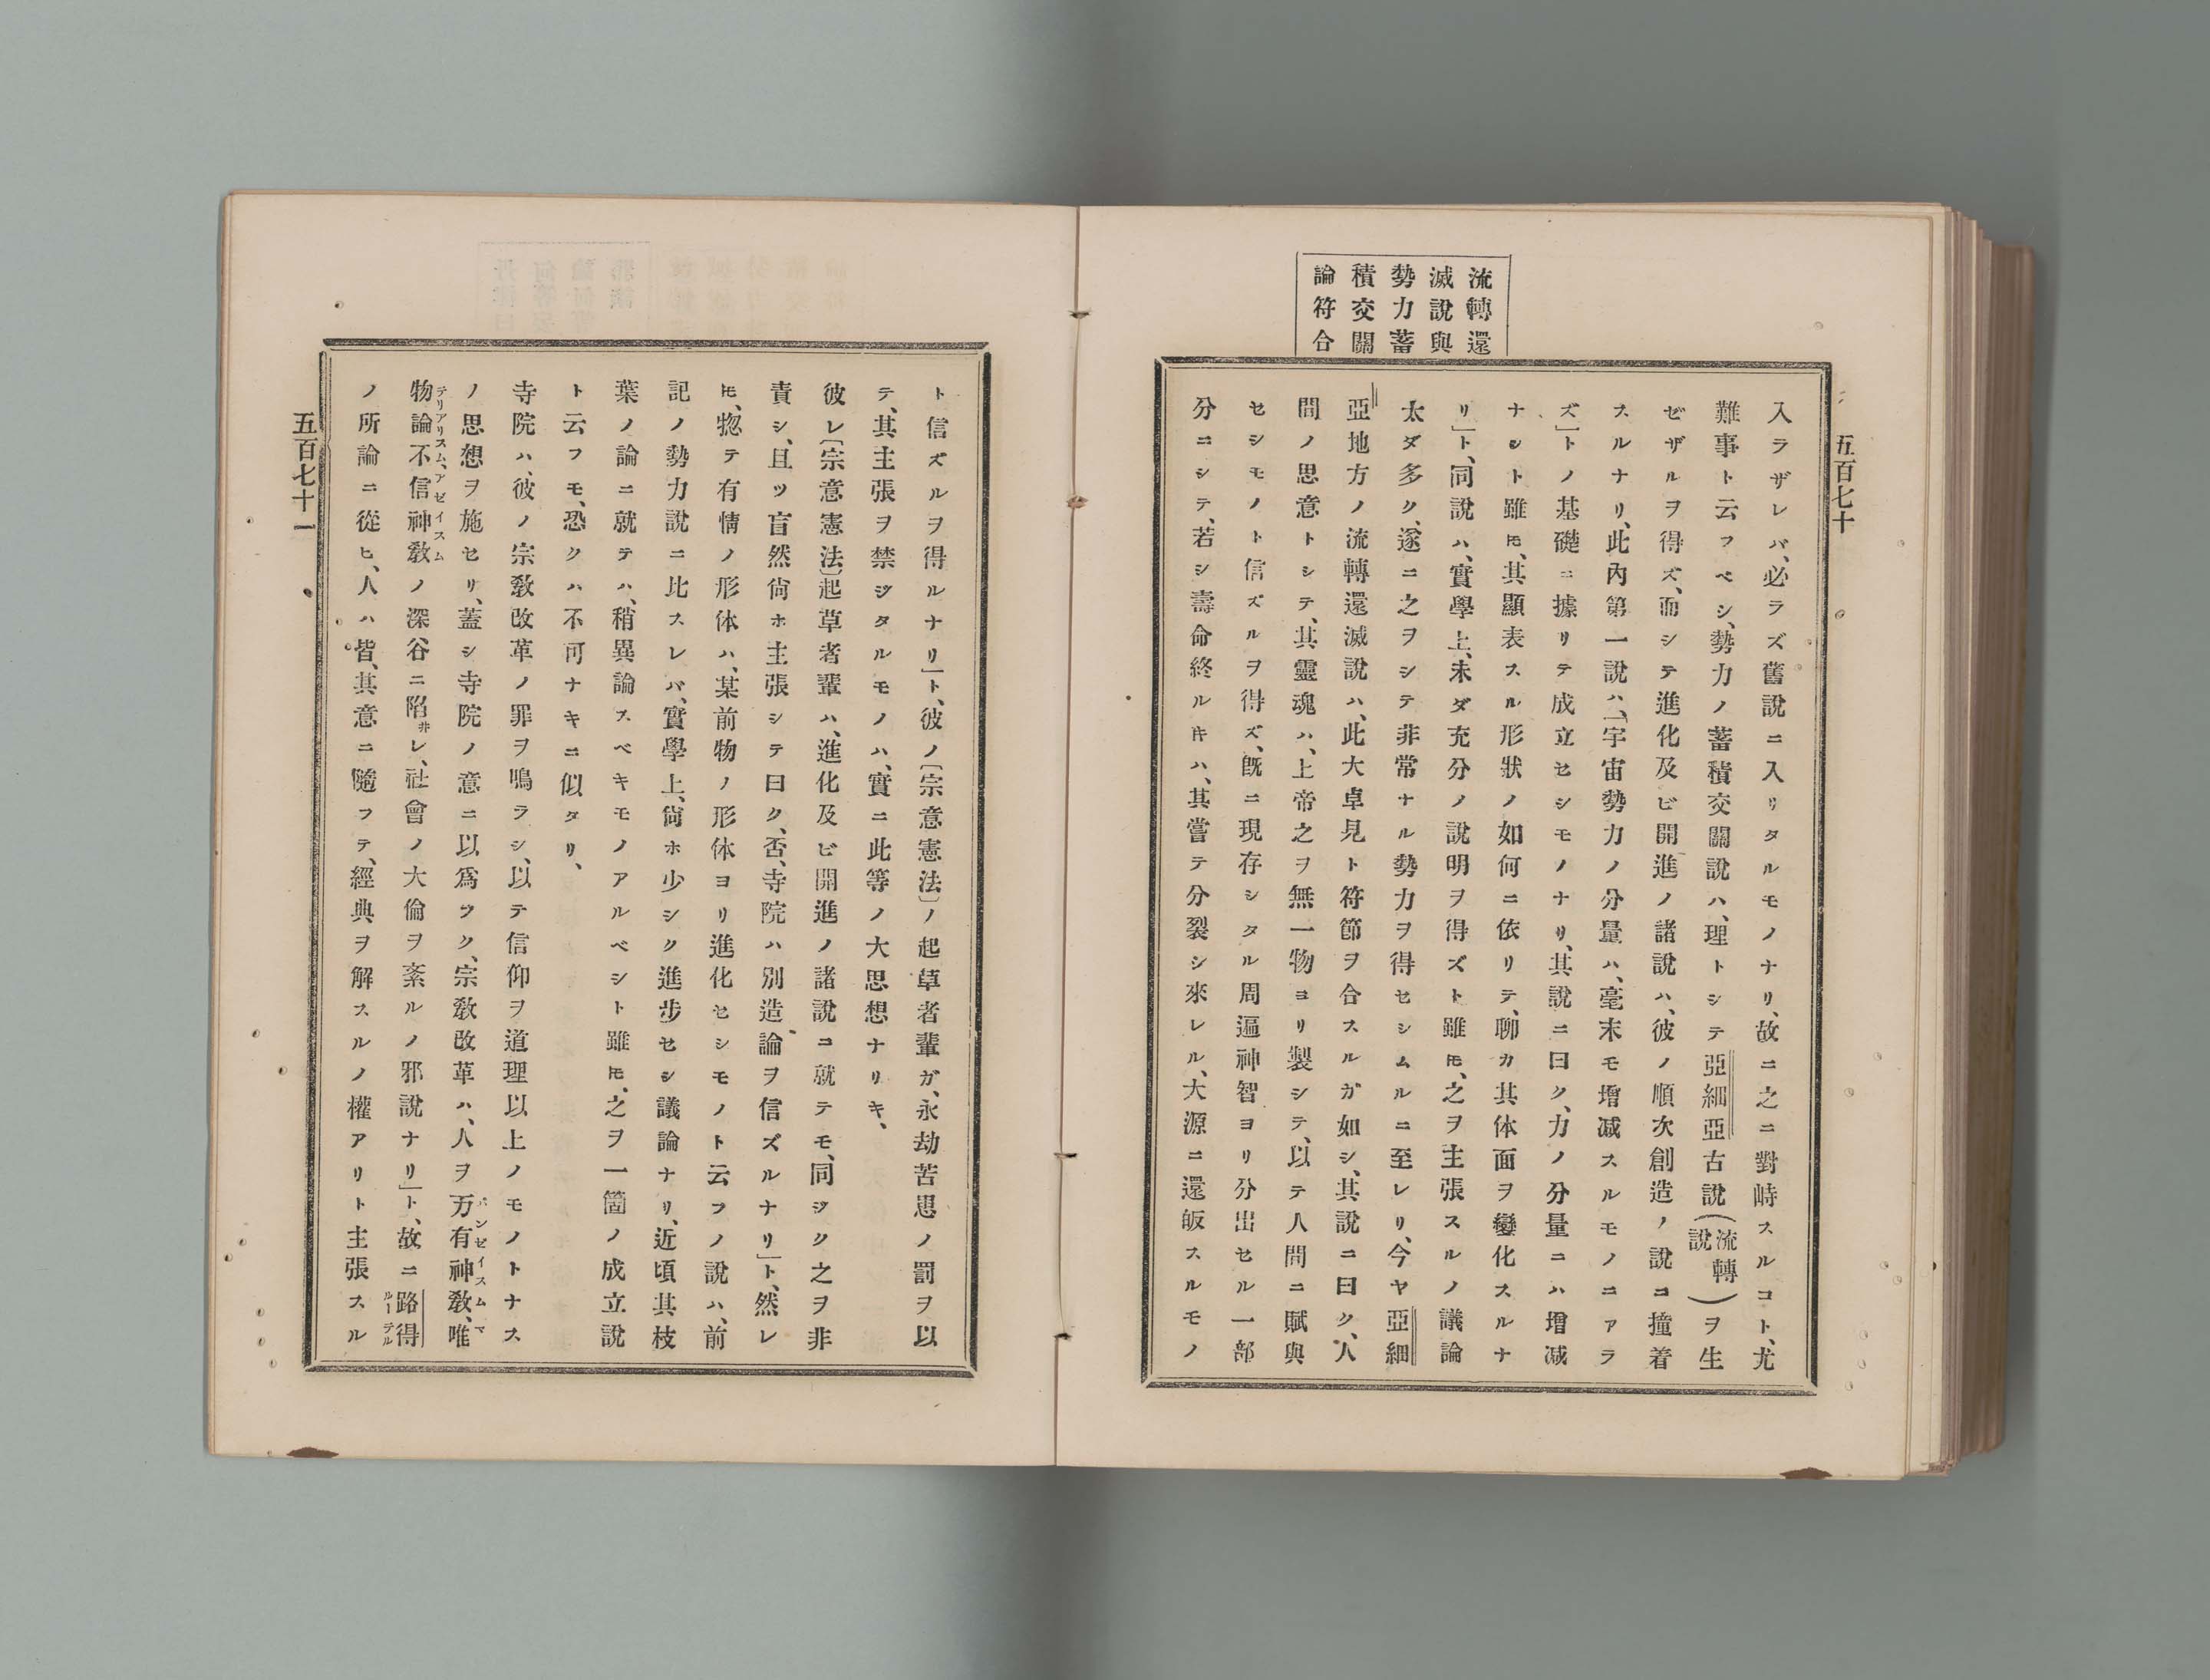 五百七十
流轉還
滅說與
勢力蓄
積交關
論符合
入ラザレバ、必ラズ舊說ニ入リタルモノナリ、故ニ之ニ對峙スルコト、尤
難事ト云フベシ、勢力ノ蓄積交關說ハ、理トシテ亞細亞古說(流轉說)ヲ生
ゼザルヲ得ズ、而シテ進化及ビ開進ノ諸說ハ、彼ノ順次創造ノ說ニ撞着
スルナリ、此內第一說ハ、「宇宙勢力ノ分量ハ、毫末モ增減スルモノニアラ
ズ」トノ基礎ニ據リテ成立セシモノナリ、其說ニ曰ク、力ノ分量ニハ增減
ナシト雖𪜈、其顯表スル形狀ノ如何ニ依リテ、聊カ其体面ヲ變化スルナ
リ」ト、同說ハ、實學上、未ダ充分ノ說明ヲ得ズト雖𪜈、之ヲ主張スルノ議論
太ダ多ク、遂ニ之ヲシテ非常ナル勢力ヲ得セシムルニ至レリ、今ヤ亞細
亞地方ノ流轉還滅說ハ、此大卓見ト符節ヲ合スルガ如シ、其說ニ曰ク、人
間ノ思意トシテ、其靈魂ハ、上帝之ヲ無一物ヨリ製シテ、以テ人間ニ賦與
セシモノト信ズルヲ得ズ、旣ニ現存シタル周遍神智ヨリ分出セル一部
分ニシテ、若シ壽命終ルキハ、其嘗テ分裂シ來レル、大源ニ還皈スルモノ
ト信ズルヲ得ルナリ」ト、彼ノ〔宗意憲法〕ノ起草者輩ガ、永劫苦思ノ罰ヲ以
テ、其主張ヲ禁ジタルモノハ、實ニ此等ノ大思想ナリキ、
彼レ〔宗意憲法〕起草者輩ハ、進化及ビ開進ノ諸說ニ就テモ、同ジク之ヲ非
責シ、且ツ盲然尙ホ主張シテ曰ク、否、寺院ハ別造論ヲ信ズルナリ」ト、然レ
𪜈、惣テ有情ノ形体ハ、某前物ノ形体ヨリ進化セシモノト云フノ說ハ、前
記ノ勢力說ニ比スレバ、實學上、尙ホ少シク進步セシ議論ナリ、近頃其枝
葉ノ論ニ就テハ、稍異論スベキモノアルベシト雖𪜈、之ヲ一箇ノ成立說
ト云フモ、恐クハ不可ナキニ似タリ、
寺院ハ、彼ノ宗敎改革ノ罪ヲ鳴ラシ、以テ信仰ヲ道理以上ノモノトナス
ノ思想ヲ施セリ、蓋シ寺院ノ意ニ以爲ラク、宗敎改革ハ、人ヲ万有神敎、唯
パンゼイスム マ
物論、不信神敎ノ深谷ニ陷レ、社會ノ大倫ヲ紊ルノ邪說ナリ」ト、故ニ路得
テリアリスム、アゼイスム
ルーテル
ノ所論ニ從ヒ、人ハ皆、其意ニ隨フテ、經典ヲ解スルノ權アリト主張スル
五百七十一